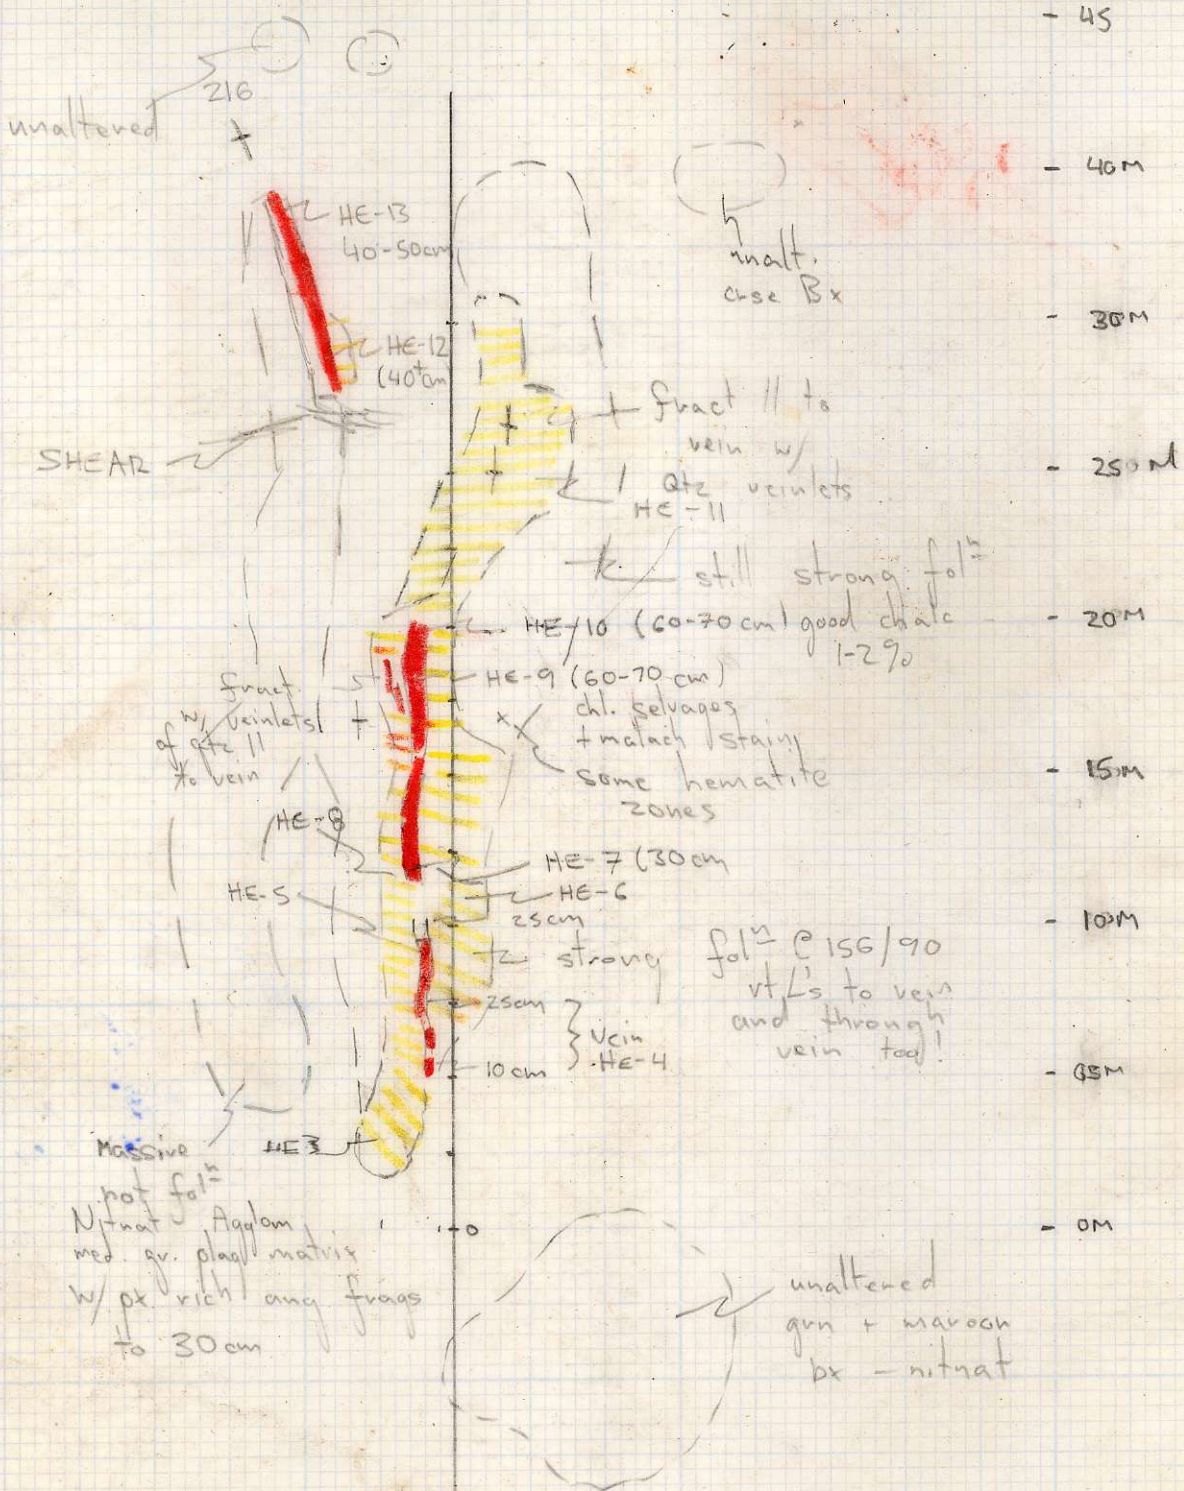 45
216
unaltered
40M
HE-13
40-50cm
unalt.
crse Bx
30M
HE-12
(40+cm)
fract // to
vein w/
Qtz veinlets
HE-11
SHEAR
25M
still strong folⁿ
HE-10 (60-70cm) good chalc
1-2%
20M
HE-9 (60-70 cm)
chl. selvages
+ malach stain
some hematite
zones
fract.
w/ veinlets
of qtz //
to vein
15M
HE-8
HE-7 (30cm
HE-6
25cm
HE-5
10M
strong folⁿ @ 156/90
rt L's to vein
and through
vein too!
25cm
vein
HE-4
10cm
05M
Massive
not folⁿ
Nitnat Agglom
med. gr. plag matrix
w/ px rich ang frags
to 30cm
HE3
0
0M
unaltered
grn + maroon
bx - nitnat